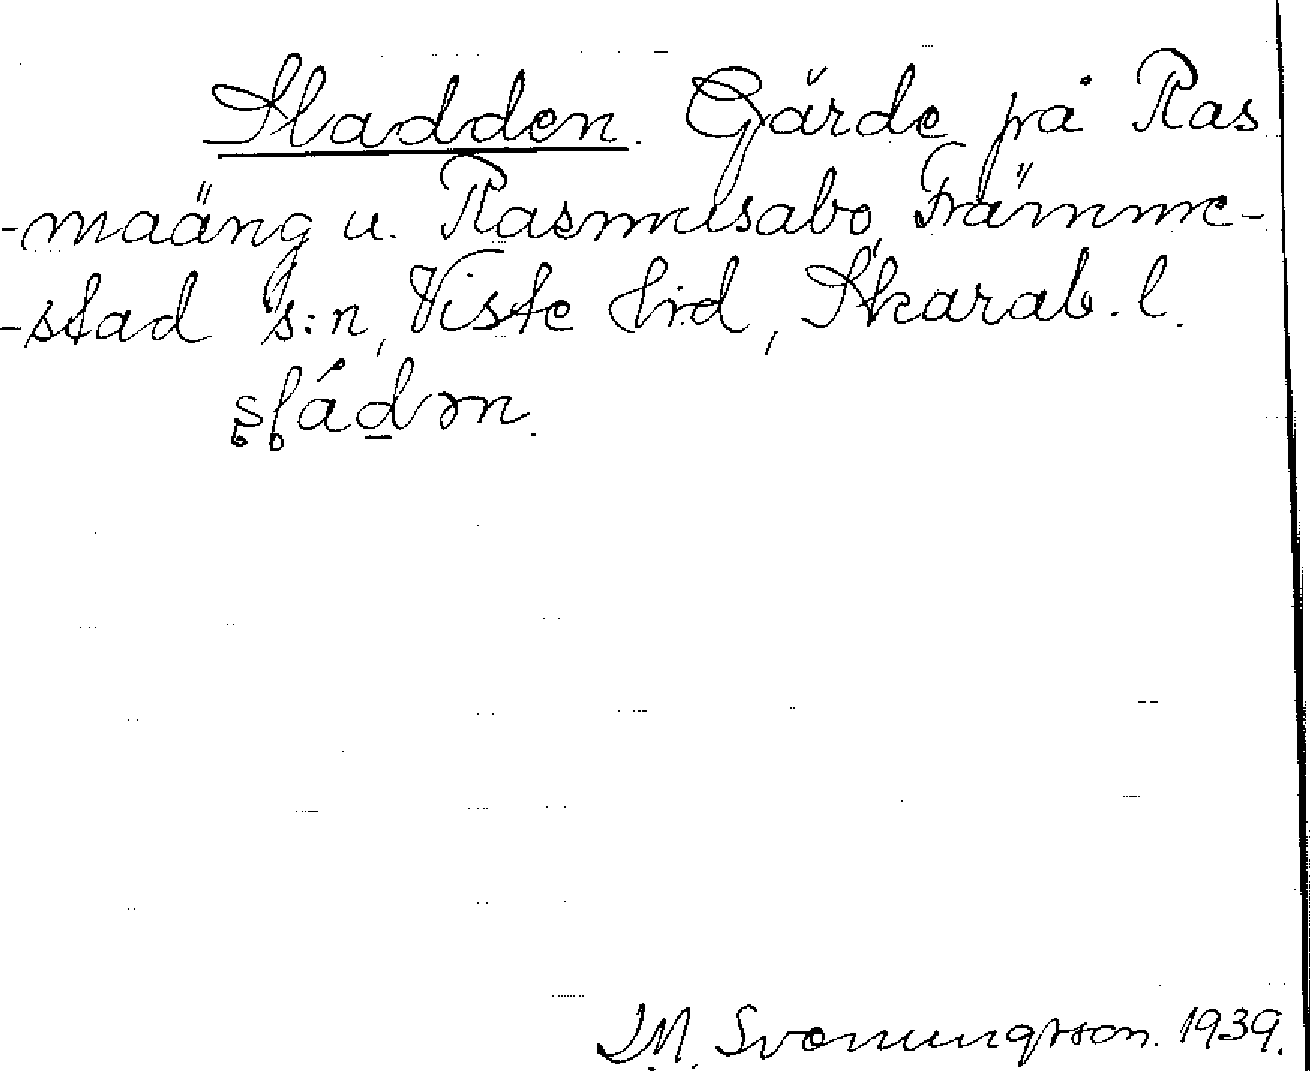 Sladden. Gärde på Ras
-maäng u. Rasmusabo, Främme-
-stad s:n, Viste hrd, Skarab. l.
sládən.
I.M. Svenungsson. 1939.